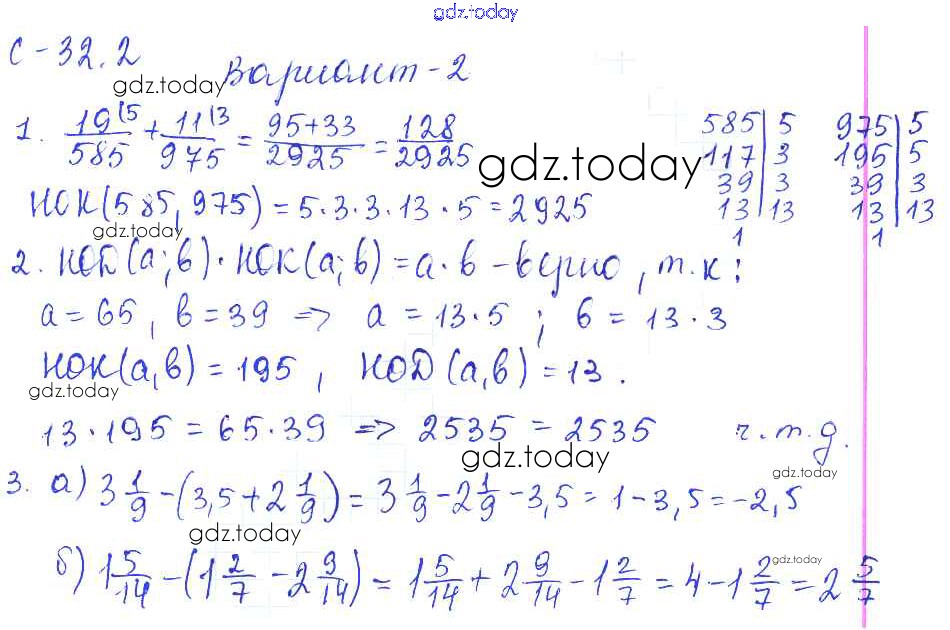 gdz.today
С-32.2
Вариант-2
gdz.today
1. 19(5/585 + 11(3/975 = 95+33/2925 = 128/2925
585|5 975|5
117|3 195|5
39|3 39|3
13|13 13|13
1 1
gdz.today
НОК(585,975) = 5·3·3·13·5 = 2925
gdz.today
2. НОД(a;b)·НОК(a;b) = a·b - верно, т.к:
a = 65, b = 39 => a = 13·5 ; b = 13·3
НОК(a,b) = 195, НОD(a,b) = 13.
gdz.today
13·195 = 65·39 => 2535 = 2535 ч.т.д.
gdz.today
3. а) 3 1/9 - (3,5 + 2 1/9) = 3 1/9 - 2 1/9 - 3,5 = 1 - 3,5 = -2,5
gdz.today
gdz.today
б) 1 5/14 - (1 2/7 - 2 9/14) = 1 5/14 + 2 9/14 - 1 2/7 = 4 - 1 2/7 = 2 5/7